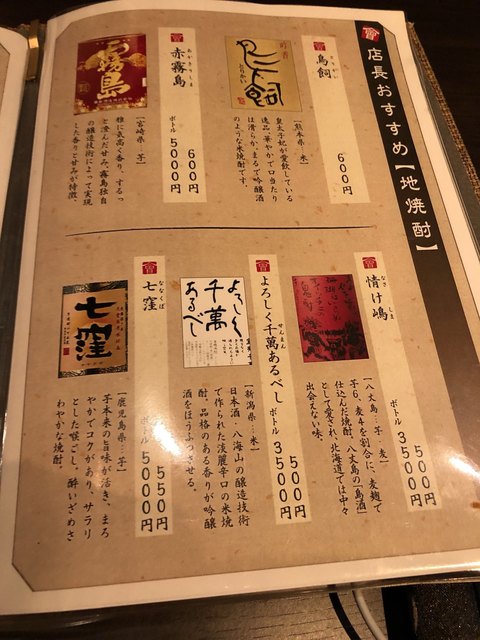 店長おすすめ【地焼酎】
鳥飼
とりかい
600円
吟香
鳥飼
とりかい
【熊本県…米】
皇太子妃が愛飲している
逸品。華やかで口当たり
は滑らか。まるで吟醸酒
のような米焼酎です。
赤霧島
あかきりしま
600円
ボトル 5000円
霧島
【宮崎県…芋】
雅に気高く香り、するっ
と澄んだ甘み。霧島独自
の醸造技術によって実現
した香りと甘みが特徴。
情け嶋
なさけしま
550円
ボトル 3500円
【八丈島…芋・麦】
芋6、麦4を割合に、麦麹で
仕込んだ焼酎。八丈島の「島酒」
として愛され、北海道では中々
出会えない味。
よろしく千萬あるべし
せんまん
550円
ボトル 3500円
よろしく
千萬
あるべし
【新潟県…米】
日本酒・八海山の醸造技術
で作られた淡麗辛口の米焼
酎。品格のある香りが吟醸
酒をほうふつさせる。
七窪
ななくぼ
550円
ボトル 5000円
七窪
【鹿児島県…芋】
芋本来の旨味が活き、まろ
やかでコクがあり、サラリ
とした喉ごし、酔いざめさ
わやかな焼酎。